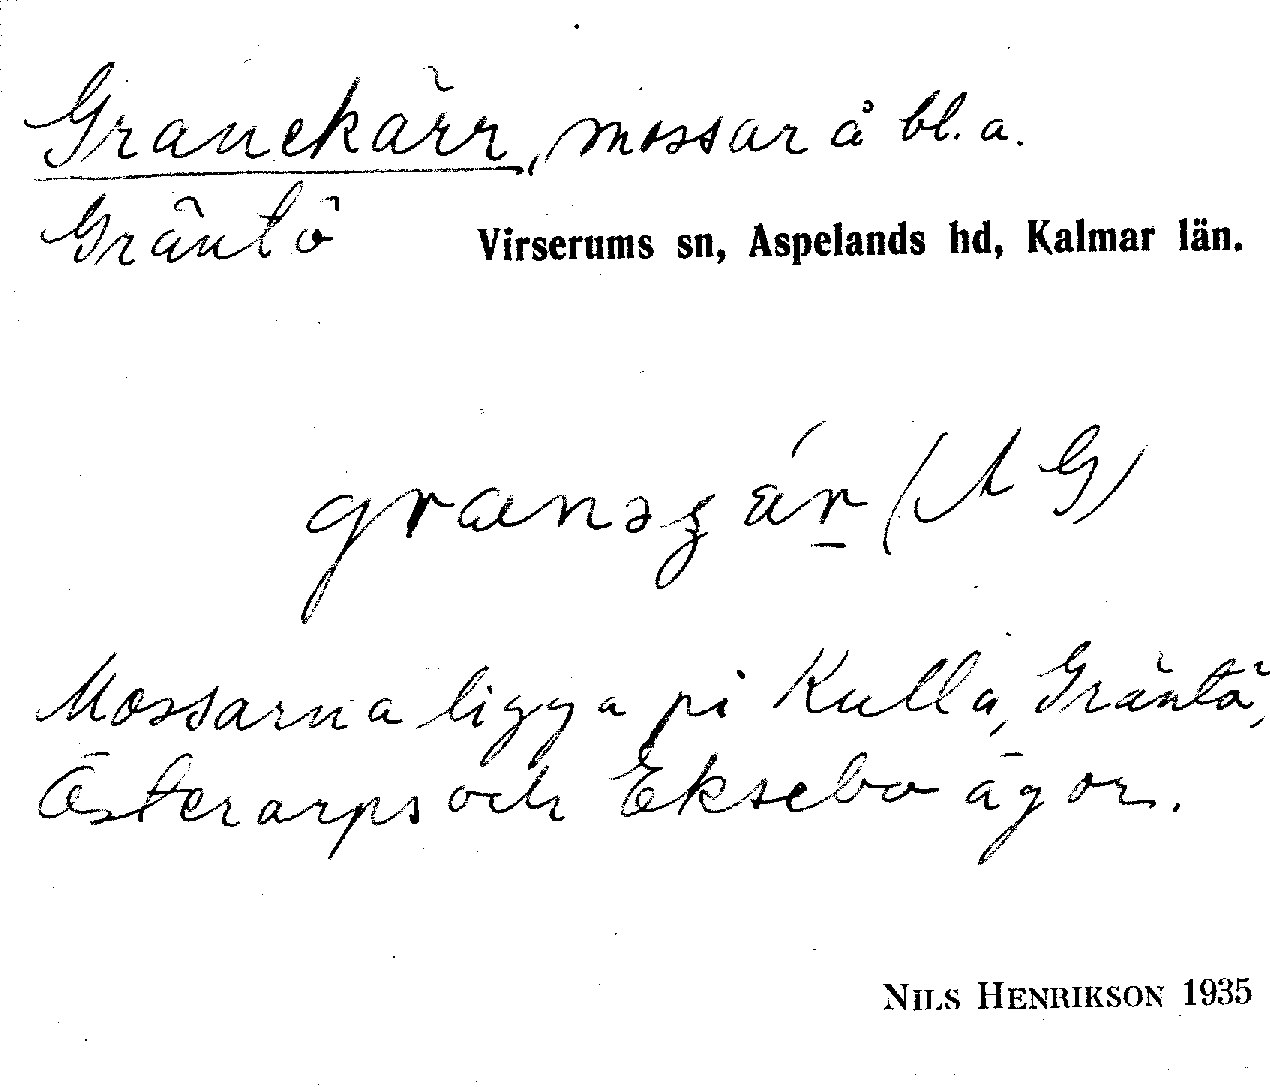 Granekärr, mossar å bl. a.
Gräntö
Virserums sn, Aspelands hd, Kalmar län.
(A G)
Mossarna ligga på Kulla, Gräntö,
Österarps och Eksebo ägor.
NILS HENRIKSON 1935